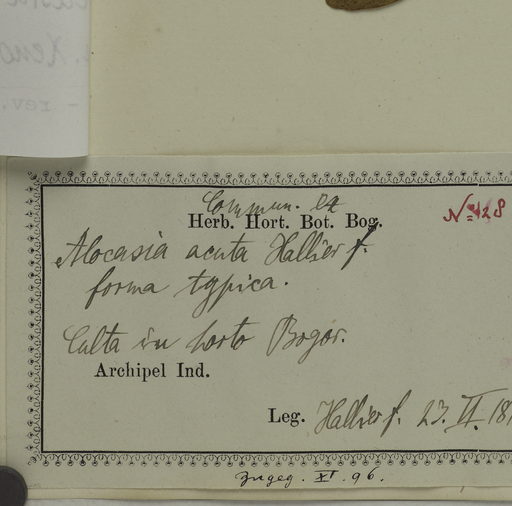 Commun. ex
Herb. Hort. Bot. Bog.
No 128
Alocasia acuta Hallier f.
forma typica.
Culta in horto Bogor.
Archipel Ind.
Leg. Hallier f. 23. II. 18
Zugeg. XI. 96.
rev.